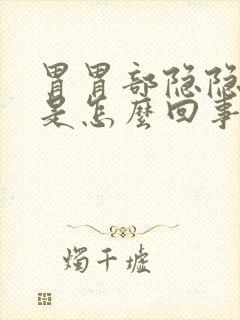 胃胃部隐隐
是怎麼回事
烛千墟